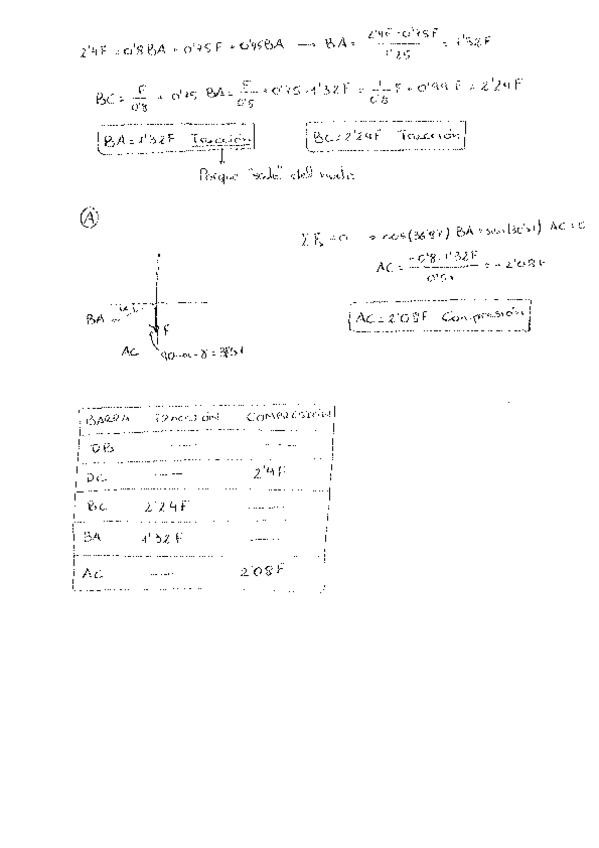 2'4F = 0'8BA + 0'75F + 0'45BA → BA = (2'4F - 0'75F)/1'25 = 1'32F
BC = F/0'8 + 0'75 BA = F/0'8 + 0'75 · 1'32F = 1/0'8 F + 0'99 F = 2'24F
BA = 1'32F Tracción
BC = 2'24F Tracción
Porque "sale" del nudo
A
= 0 → cos(36'87) BA + AC = 0
AC = (-0'8 · 1'32F)/ = -2'08F
AC = 2'08F Compresión
BA
F
AC
BARRA TRACCIÓN COMPRESIÓN
DB —— ——
DC —— 2'4F
BC 2'24F ——
BA 1'32F ——
AC —— 2'08F